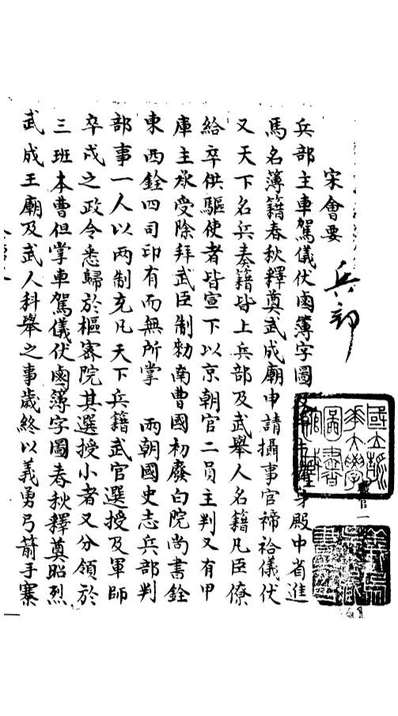 宋會要
兵部
兵部主車駕儀伏鹵簿字圖身殿中省進
馬名簿籍春秋釋奠武成廟申請攝事官禘祫儀伏
又天下名兵奏籍皆上兵部及武舉人名籍凡臣僚
給卒供驅使者皆宣下以京朝官二員主判又有甲
庫主承受除拜武臣制勑南曹國初廢白院尚書銓
東西銓四司印有而無所掌 兩朝國史志兵部判
部事一人以兩制充凡天下兵籍武官選授及軍師
卒戍之政令悉歸於樞密院其選授小者又分領於
三班本曹但掌車駕儀伏鹵簿字圖春秋釋奠昭烈
武成王廟及武人科舉之事歲終以義勇弓箭手寨